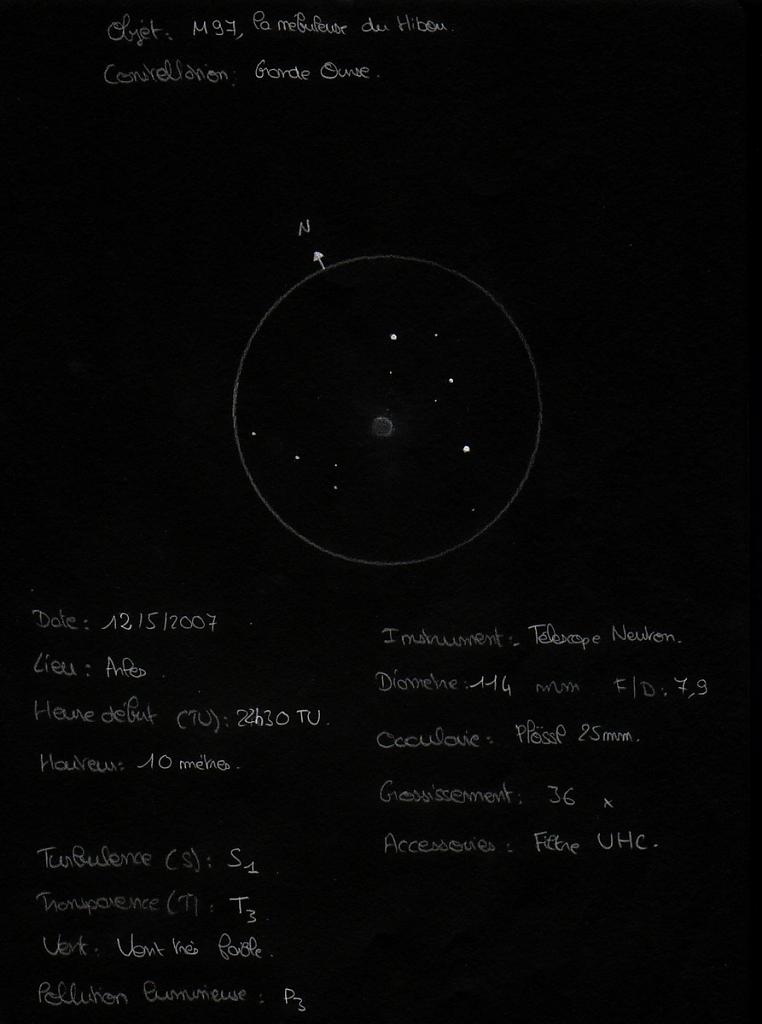 Objet: M97, la nébuleuse du Hibou.
Constellation: Grande Ourse.
N
Date: 12/5/2007
Lieu: Arles.
Heure début (TU): 22h30 TU.
Hauteur: 10 mètres.
Turbulence (S): S1
Transparence (T): T3
Vent: Vent très faible.
Pollution lumineuse: P3
Instrument: Télescope Newton.
Diamètre: 114 mm F/D: 7,9
Oculaire: Plössl 25mm.
Grossissement: 36 x
Accessoires: Filtre UHC.